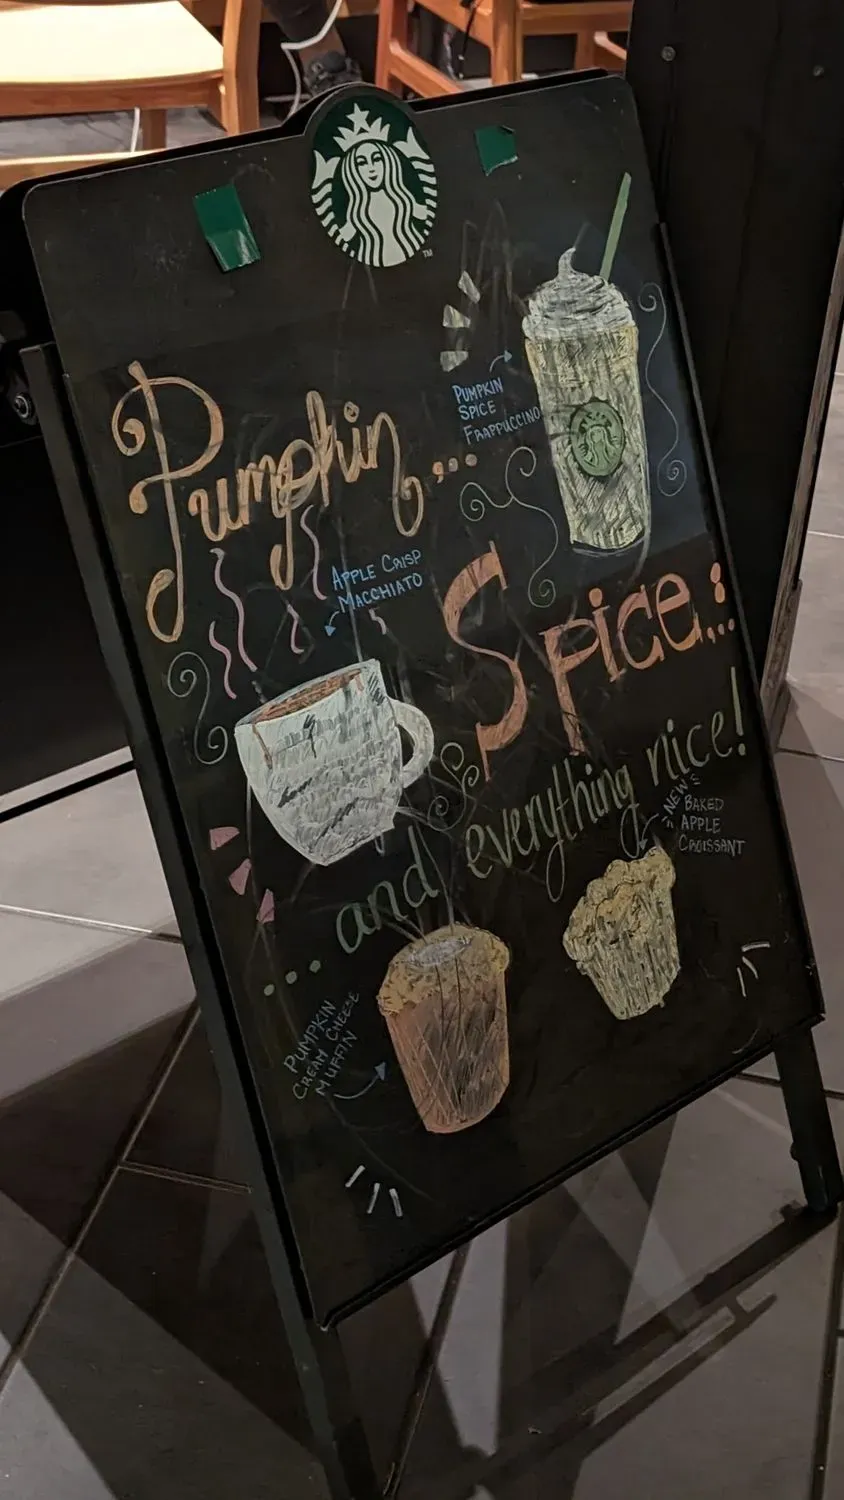 Pumpkin...
PUMPKIN
SPICE
FRAPPUCCINO
APPLE CRISP
MACCHIATO
Spice...
...and everything nice!
NEW
BAKED
APPLE
CROISSANT
PUMPKIN
CREAM CHEESE
MUFFIN
TM